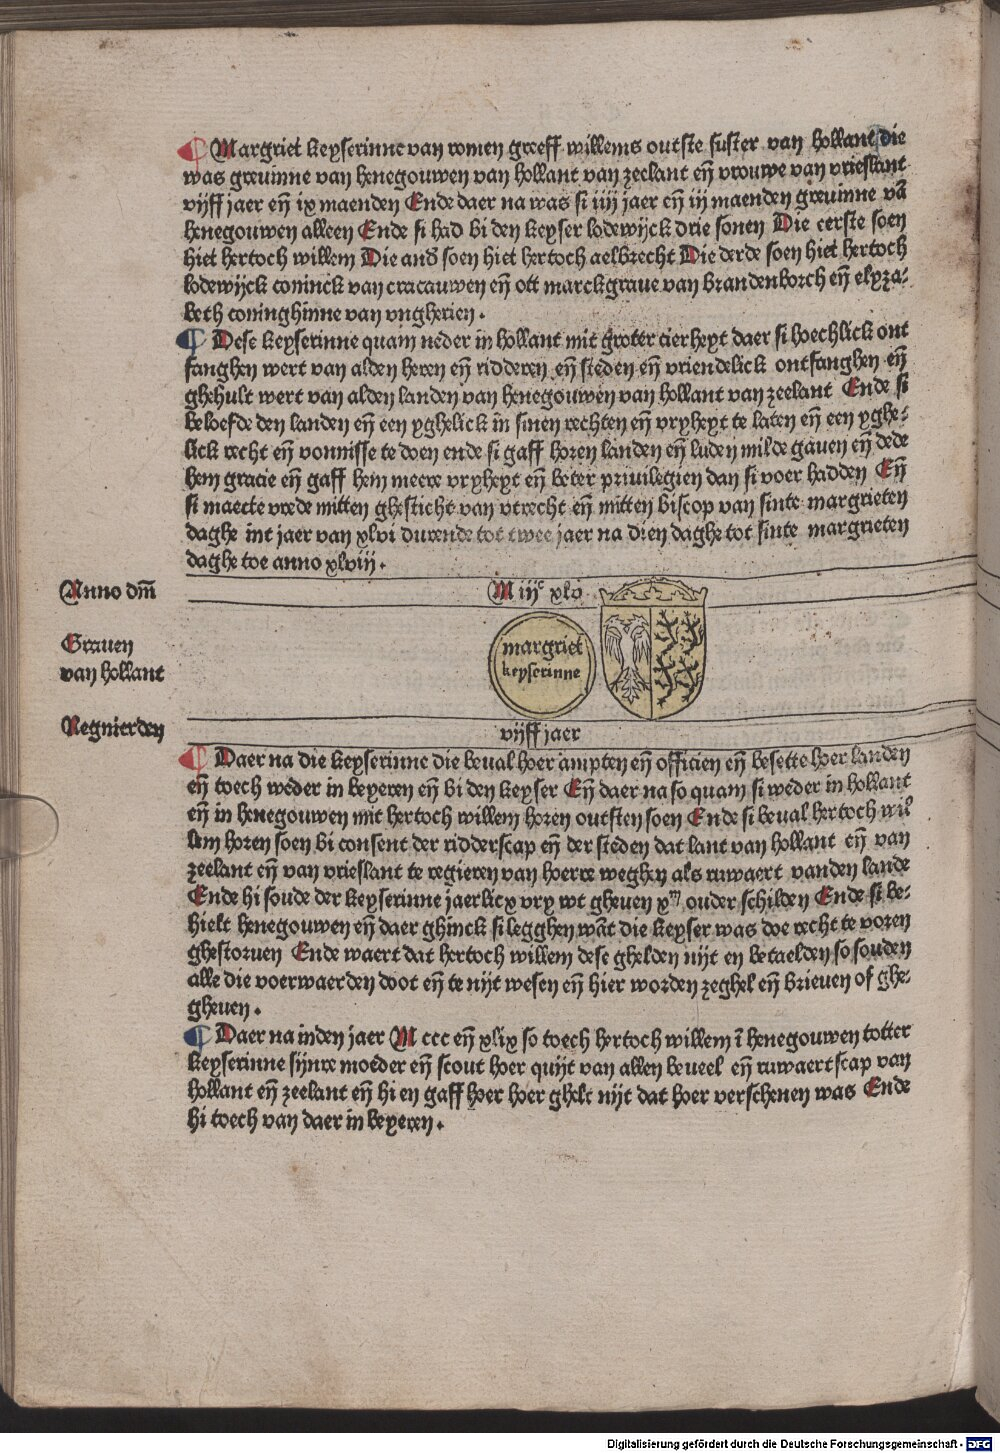 ¶ Margriet keyserinne van romen greeff willems outste suster van hollant die
was grevinne van henegouwen van hollant van zeelant eñ vrouwe van vrieslant
vijff jaer eñ ix maenden Ende daer na was si iiij jaer eñ iij maenden grevinne vā
henegouwen alleen Ende si had bi den keyser lodewijck drie sonen Die eerste soen
hiet hertoch willem Die and̄ soen hiet hertoch aelbrecht Die derde soen hiet hertoch
lodewijck coninck van cracauwen eñ ott marckgrave van brandenborch eñ elyza-
beth coninghinne van ungherien.
¶ Dese keyserinne quam neder in hollant mit groter cierheyt daer si hoechlick ont
fanghen wert van alden heren eñ ridderen eñ steden eñ vriendelick ontfanghen eñ
ghehult wert van alden landen van henegouwen van hollant van zeelant Ende si
beloefde den landen eñ een yghelick in sinen rechten eñ vryheyt te laten eñ een yghe-
lick recht eñ vonnisse te doen ende si gaff horen landen eñ luden milde gaven eñ dede
hem gracie eñ gaff hem meere vryheyt eñ beter privilegien dan si voer hadden Eñ
si maecte vrede mitten ghesticht van utrecht eñ mitten biscop van sinte margrieten
daghe int jaer van xlvi durende tot twee jaer na dien daghe tot sinte margrieten
daghe toe anno xlviij.
Anno dm̄
M iijc xlv
Graven
van hollant
margriet
keyserinne
Regnierden
vijff jaer
¶ Daer na die keyserinne die beval hoer ampten eñ officien eñ besette hoer landen
eñ toech weder in beyeren eñ bi den keyser Eñ daer na so quam si weder in hollant
eñ in henegouwen mit hertoch willem horen outsten soen Ende si beval hertoch wil
lem horen soen bi consent der ridderscap eñ der steden dat lant van hollant eñ van
zeelant eñ van vrieslant te regieren van hoerre weghen als ruwaert vanden lande
Ende hi soude der keyserinne jaerlicx vry wt gheven xm ouder schilden Ende si be-
hielt henegouwen eñ daer ghinck si legghen wāt die keyser was doe recht te voren
ghestorven Ende waert dat hertoch willem dese ghelden nijt en betaelden so souden
alle die voerwaerden doot eñ te nijt wesen eñ hier worden zeghel eñ brieven of ghe-
gheven.
¶ Daer na inden jaer M ccc eñ xlix so toech hertoch willem ī henegouwen totter
keyserinne sijnre moeder eñ scout hoer quijt van allen beveel eñ ruwaertscap van
hollant eñ zeelant eñ hi en gaff hoer hoer ghelt nijt dat hoer verschenen was Ende
hi toech van daer in beyeren.
Digitalisierung gefördert durch die Deutsche Forschungsgemeinschaft - DFG